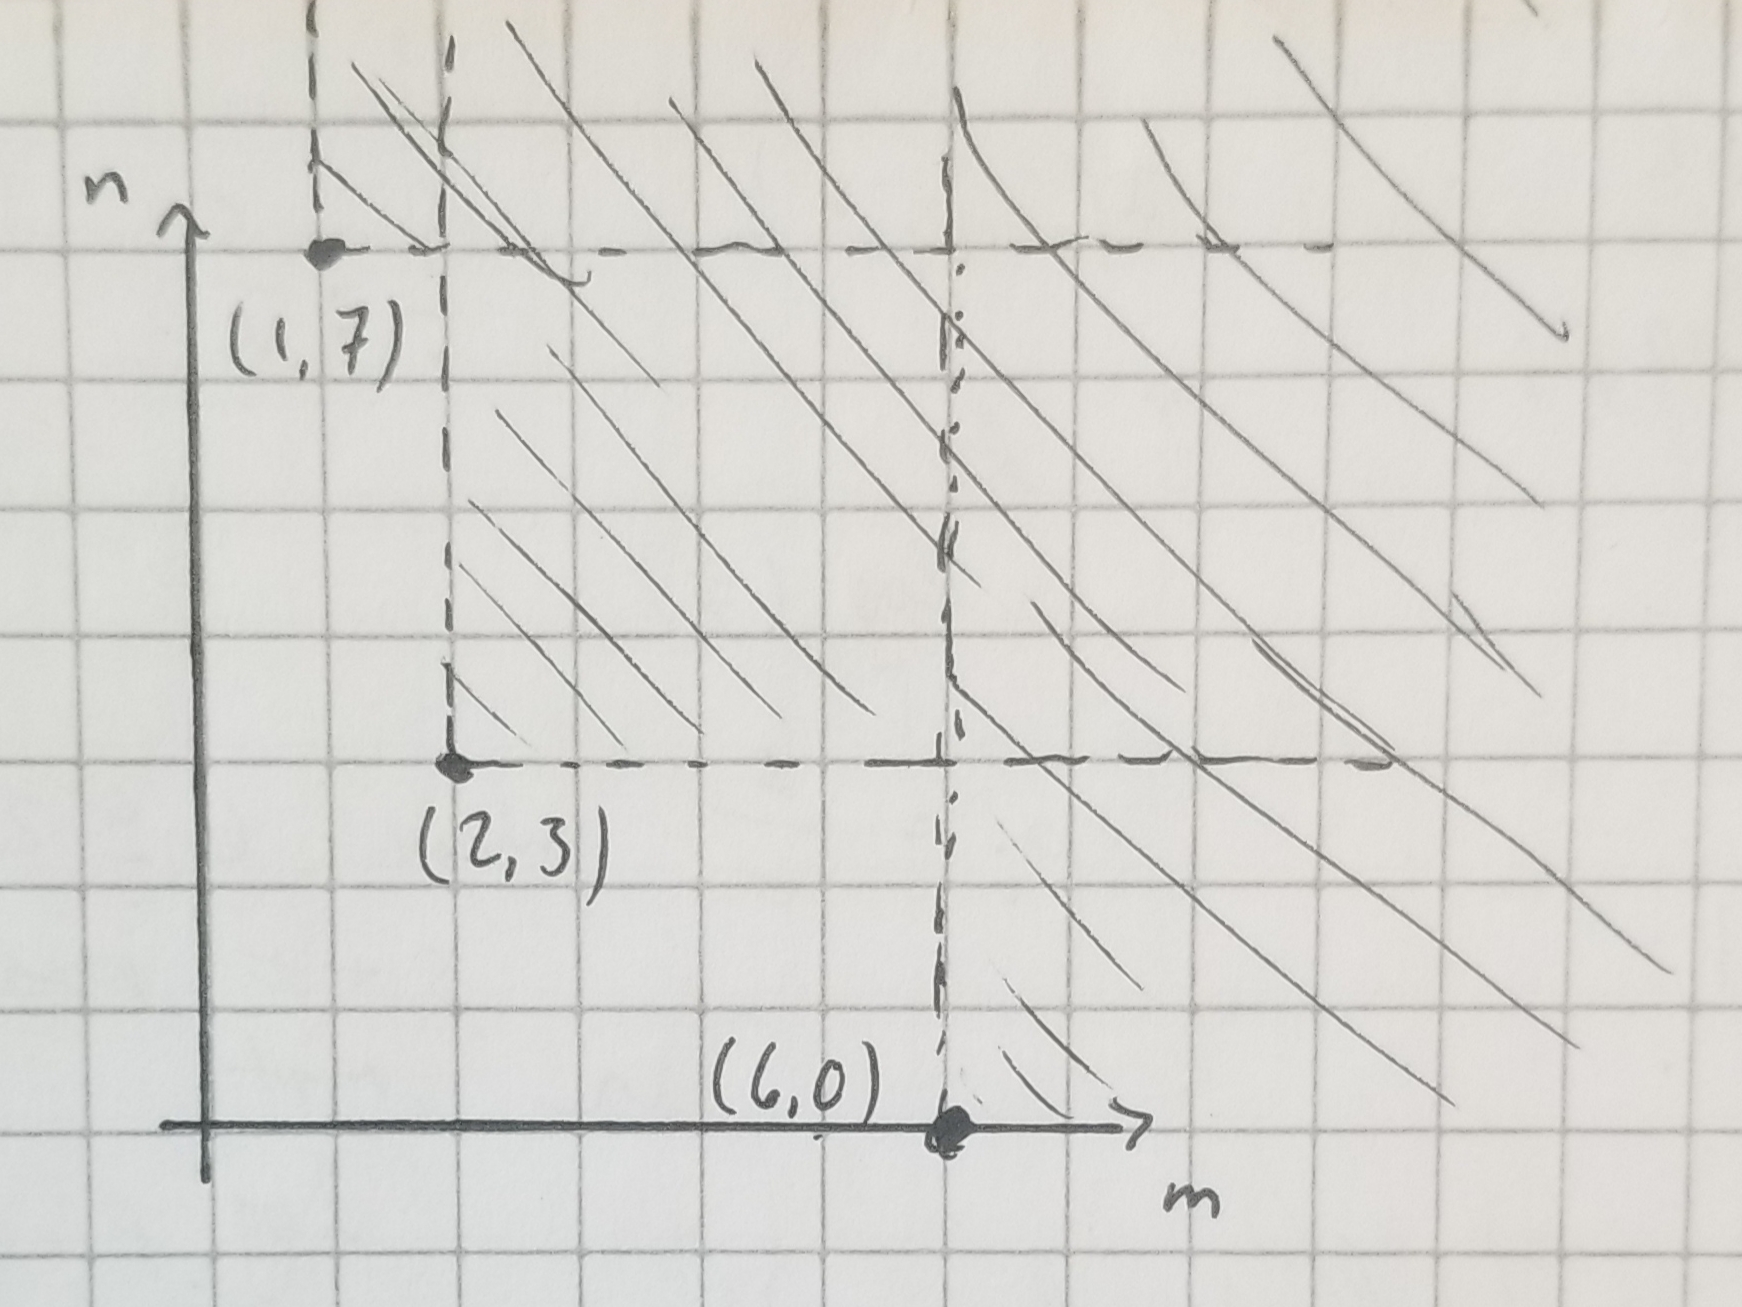 n
(1,7)
(2,3)
(6,0)
m